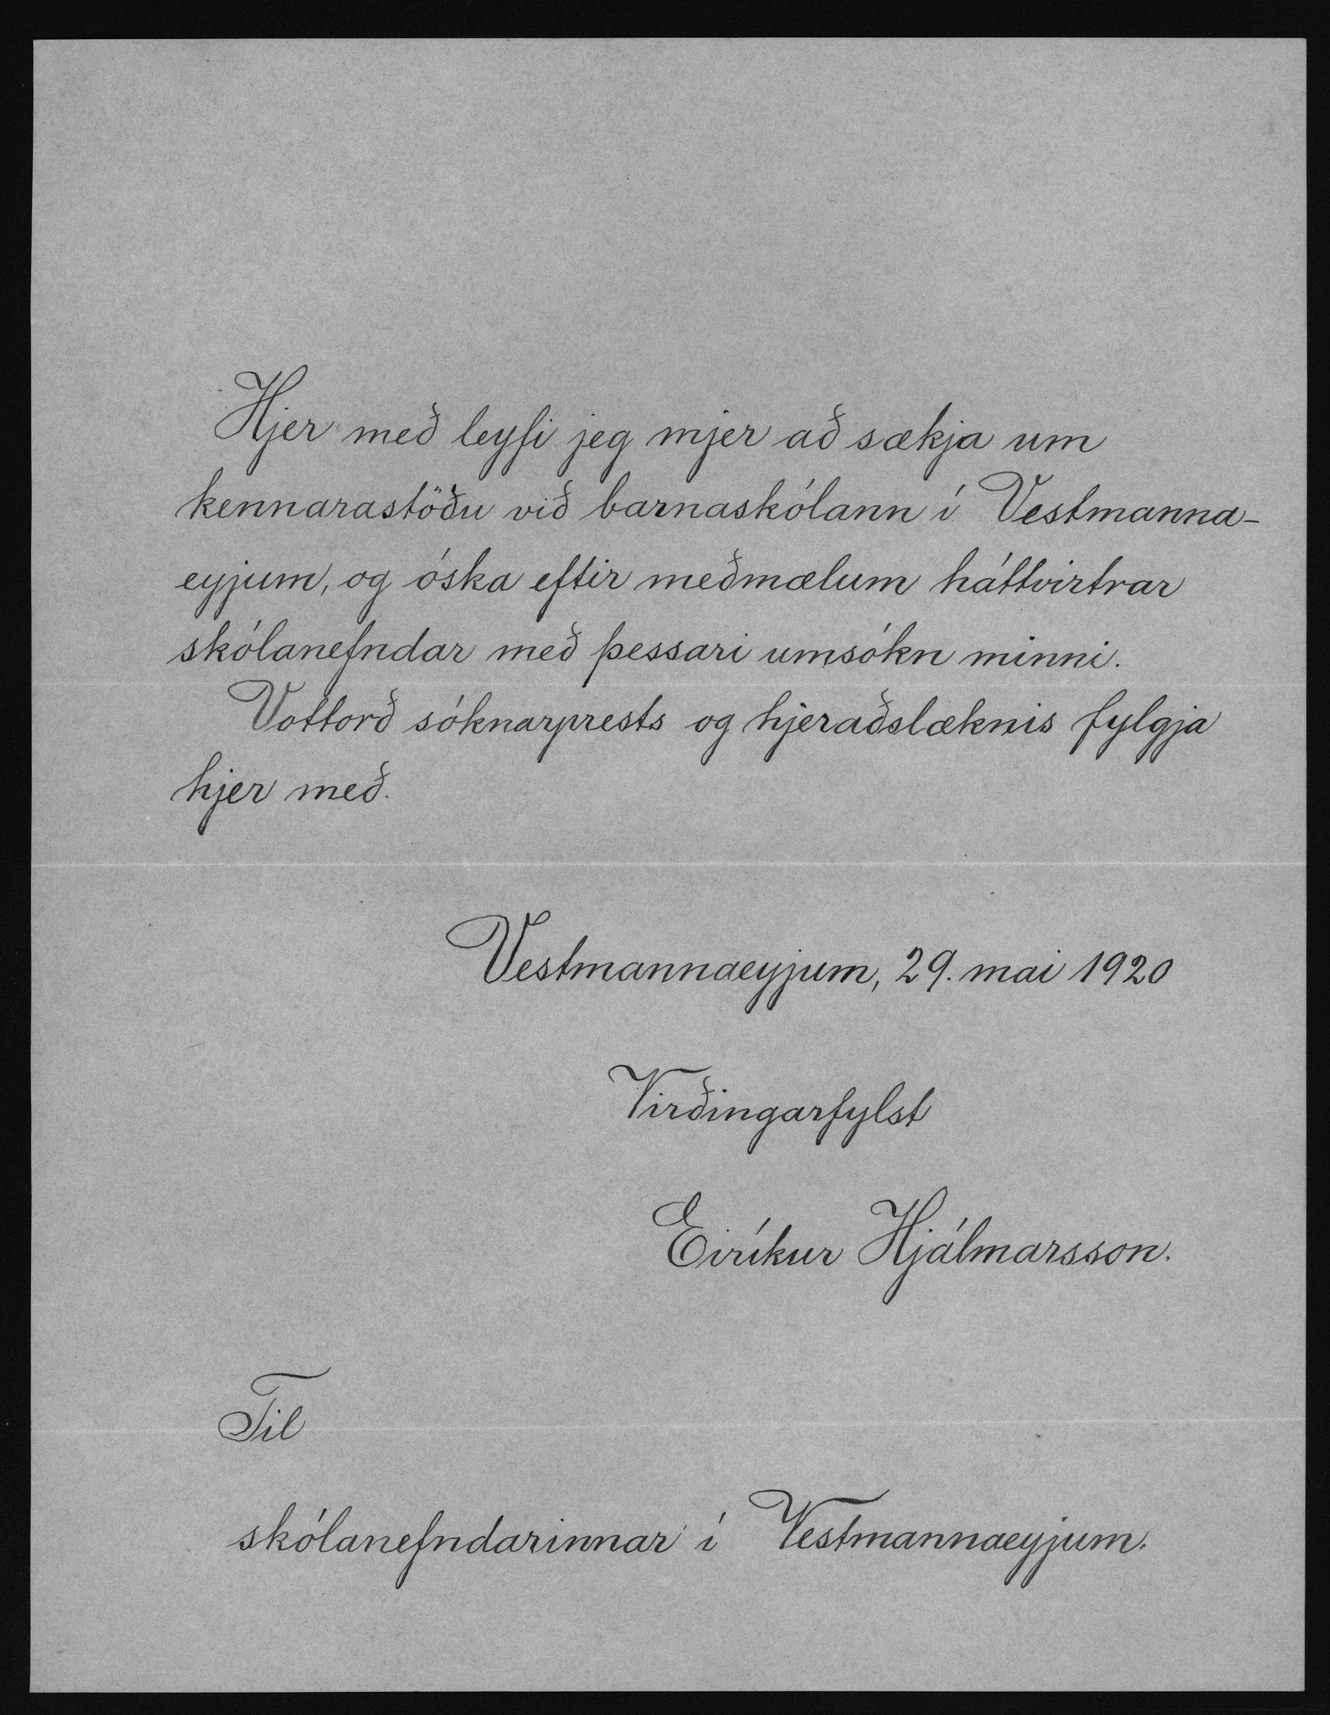 Hjer með leyfi jeg mjer að sækja um
kennarastöðu við barnaskólann í Vestmanna-
eyjum, og óska eftir meðmælum háttvirtrar
skólanefndar með þessari umsókn minni.
Vottorð sóknarprests og hjeraðslæknis fylgja
hjer með.
Vestmannaeyjum, 29. mai 1920
Virðingarfylst
Eiríkur Hjálmarsson.
Til
skólanefndarinnar í Vestmannaeyjum.